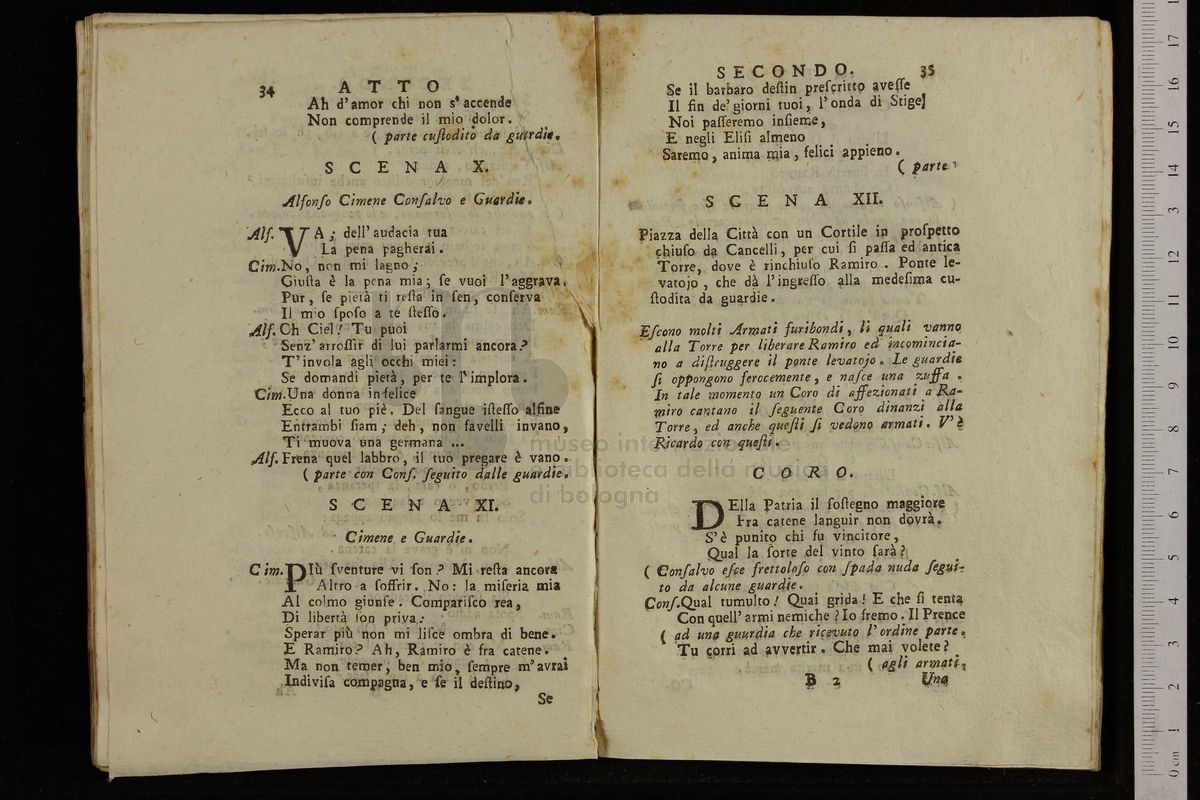 34 ATTO
Ah d'amor chi non s'accende
Non comprende il mio dolor.
( parte cuſtodito da guardie.
SCENA X.
Alfonſo Cimene Conſalvo e Guardie.
Alf. VA; dell'audacia tua
La pena pagherai.
Cim. No, non mi lagno;
Giuſta è la pena mia; ſe vuoi l'aggrava.
Pur, ſe pietà ti reſta in ſen, conſerva
Il mio ſpoſo a te ſteſſo.
Alf. Oh Ciel! Tu puoi
Senz'arroſſir di lui parlarmi ancora?
T'invola agli occhi miei:
Se domandi pietà, per te l'implora.
Cim. Una donna infelice
Ecco al tuo piè. Del ſangue iſteſſo alfine
Entrambi ſiam; deh, non favelli invano,
Ti muova una germana ...
Alf. Frena quel labbro, il tuo pregare è vano.
( parte con Conſ. ſeguito dalle guardie.
SCENA XI.
Cimene e Guardie.
Cim. PIù ſventure vi ſon? Mi reſta ancora
Altro a ſoffrir. No: la miſeria mia
Al colmo giunſe. Compariſco rea,
Di libertà ſon priva:
Sperar più non mi liſce ombra di bene.
E Ramiro? Ah, Ramiro è fra catene.
Ma non temer, ben mio, ſempre m'avrai
Indiviſa compagna, e ſe il deſtino,
Se
SECONDO. 35
Se il barbaro deſtin preſcritto aveſſe
Il fin de'giorni tuoi, l'onda di Stige
Noi paſſeremo inſieme,
E negli Eliſi almeno
Saremo, anima mia, felici appieno.
( parte
SCENA XII.
Piazza della Città con un Cortile in proſpetto
chiuſo da Cancelli, per cui ſi paſſa ed antica
Torre, dove è rinchiuſo Ramiro. Ponte le-
vatojo, che dà l'ingreſſo alla medeſima cu-
ſtodita da guardie.
Eſcono molti Armati furibondi, li quali vanno
alla Torre per liberare Ramiro ed incomincia-
no a diſtruggere il ponte levatojo. Le guardie
ſi oppongono ferocemente, e naſce una zuffa.
In tale momento un Coro di affezionati a Ra-
miro cantano il ſeguente Coro dinanzi alla
Torre, ed anche queſti ſi vedono armati. V'è
Ricardo con queſti.
CORO.
DElla Patria il ſoſtegno maggiore
Fra catene languir non dovrà.
S'è punito chi fu vincitore,
Qual la ſorte del vinto ſarà?
( Conſalvo eſce frettoloſo con ſpada nuda ſegui-
to da alcune guardie.
Conſ. Qual tumulto! Quai grida! E che ſi tenta
Con quell'armi nemiche? Io fremo. Il Prence
( ad una guardia che ricevuto l'ordine parte.
Tu corri ad avvertir. Che mai volete?
( agli armati.
B 2 Una
museo internazionale
e biblioteca della musica
di bologna